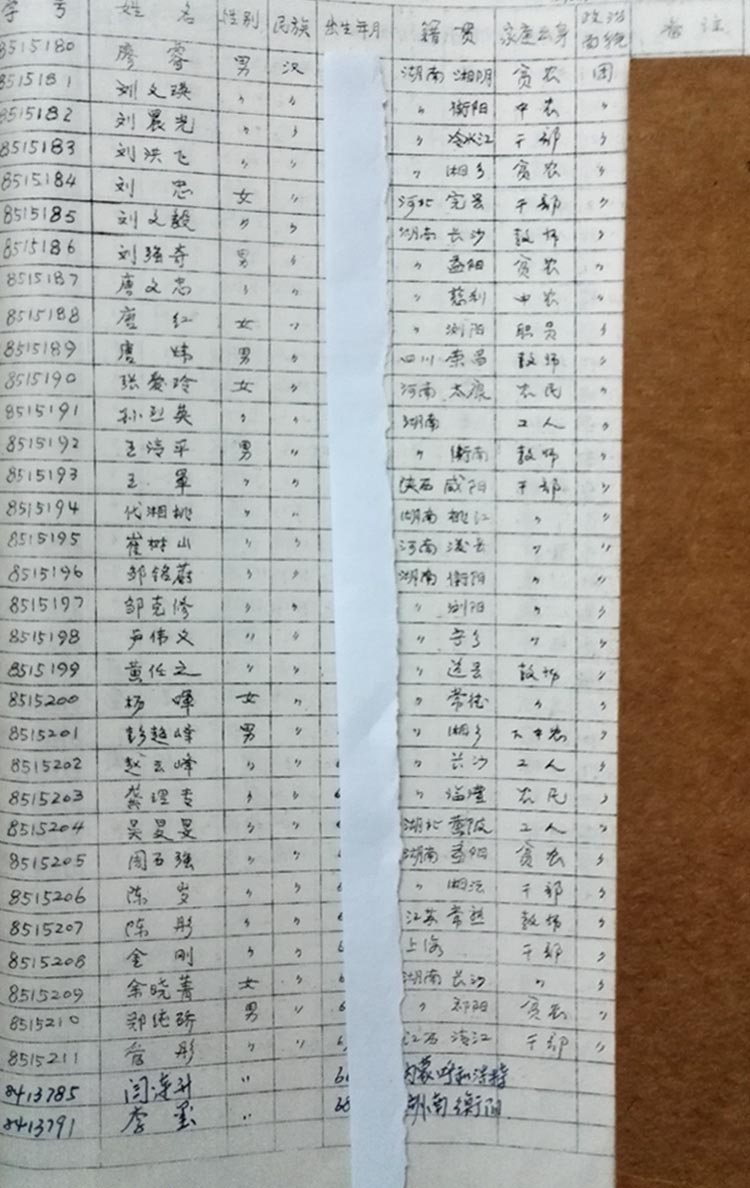 学号 姓名 性别 民族 出生年月 籍贯 家庭出身 政治面貌 备注
8515180 廖蓉 男 汉 湖南 湘阴 贫农 团
8515181 刘文瑛 〃 〃 〃 衡阳 中农 〃
8515182 刘晨光 〃 〃 〃 冷水江 干部 〃
8515183 刘洪飞 〃 〃 〃 湘乡 贫农 〃
8515184 刘忠 女 〃 河北 完县 干部 〃
8515185 刘文毅 〃 〃 湖南 长沙 教师 〃
8515186 刘强奇 男 〃 〃 益阳 贫农 〃
8515187 唐文忠 〃 〃 〃 慈利 中农 〃
8515188 唐红 女 〃 〃 浏阳 职员 〃
8515189 唐炜 男 〃 四川 荣昌 教师 〃
8515190 张爱玲 女 〃 河南 太康 农民 〃
8515191 孙烈英 〃 〃 湖南 工人 〃
8515192 王清平 男 〃 〃 衡南 教师 〃
8515193 王军 〃 〃 陕西 咸阳 干部 〃
8515194 代湘桃 〃 〃 湖南 桃江 〃 〃
8515195 崔树山 〃 〃 河南 县 〃 〃
8515196 邹铭蔚 〃 〃 湖南 衡阳 〃 〃
8515197 邹克修 〃 〃 〃 浏阳 〃 〃
8515198 尹伟文 〃 〃 〃 宁乡 〃 〃
8515199 黄任之 〃 〃 〃 道县 教师 〃
8515200 杨晖 女 〃 〃 常德 〃 〃
8515201 彭超峰 男 〃 〃 湘乡 下中农 〃
8515202 赵云峰 〃 〃 〃 长沙 工人 〃
8515203 龚理专 〃 〃 〃 临澧 农民 〃
8515204 吴旻旻 〃 〃 湖北 黄陂 工人 〃
8515205 周石强 〃 〃 湖南 益阳 贫农 〃
8515206 陈岁 〃 〃 〃 湘江 干部 〃
8515207 陈彤 〃 〃 江苏 常熟 教师 〃
8515208 金刚 〃 〃 6 上海 干部 〃
8515209 余晓菁 女 〃 湖南 长沙 〃 〃
8515210 郑纯骄 男 〃 6 〃 邵阳 贫农 〃
8515211 詹彤 〃 〃 6 江西 清江 干部 〃
8413785 闫连升 〃 6 内蒙呼和浩特
8413791 李墨 〃 68 湖南 衡阳